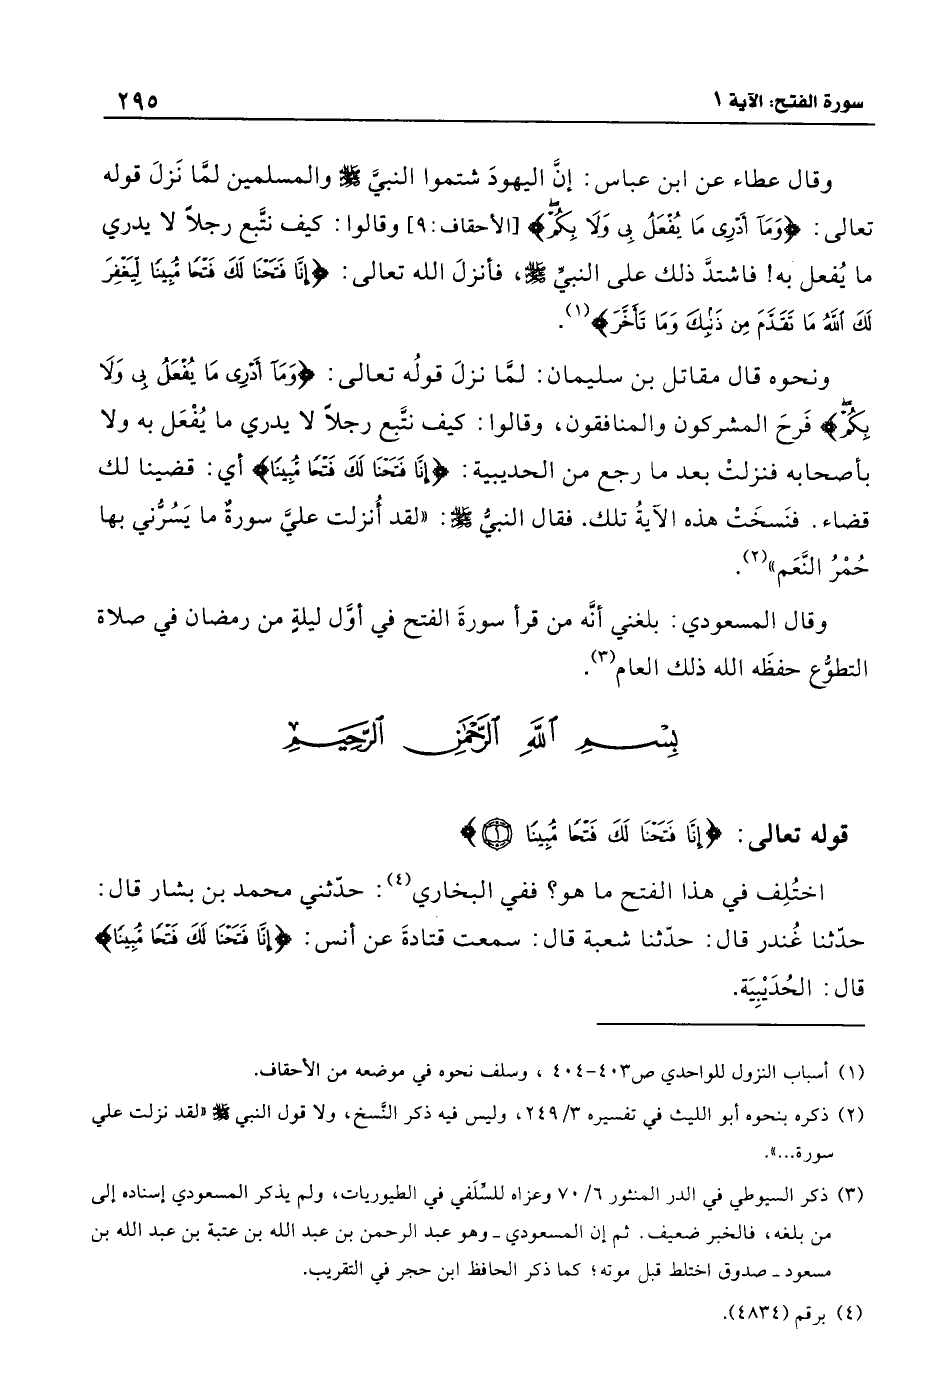 سورة الفتح: الآية ١
٢٩٥
وقال عطاء عن ابن عباس: إنَّ اليهودَ شتموا النبيَّ ﷺ والمسلمين لمَّا نَزلَ قوله
تعالى: ﴿وَمَآ أَدْرِى مَا يُفْعَلُ بِى وَلَا بِكُمْ﴾ [الأحقاف:٩] وقالوا: كيف نتَّبع رجلاً لا يدري
ما يُفعل به! فاشتدَّ ذلك على النبيِّ ﷺ، فأنزلَ الله تعالى: ﴿إِنَّا فَتَحْنَا لَكَ فَتْحًا مُّبِينًا لِّيَغْفِرَ
لَكَ ٱللَّهُ مَا تَقَدَّمَ مِن ذَنۢبِكَ وَمَا تَأَخَّرَ﴾(١).
ونحوه قال مقاتل بن سليمان: لمَّا نزلَ قولُه تعالى: ﴿وَمَآ أَدْرِى مَا يُفْعَلُ بِى وَلَا
بِكُمْ﴾ فَرحَ المشركون والمنافقون، وقالوا: كيف نتَّبع رجلاً لا يدري ما يُفْعَل به ولا
بأصحابه فنزلتْ بعد ما رجع من الحديبية: ﴿إِنَّا فَتَحْنَا لَكَ فَتْحًا مُّبِينًا﴾ أي: قضينا لك
قضاء. فنَسخَتْ هذه الآيةُ تلك. فقال النبيُّ ﷺ: «لقد أُنزلت عليَّ سورةٌ ما يَسُرُّني بها
حُمْرُ النَّعَم»(٢).
وقال المسعودي: بلغني أنَّه من قرأ سورةَ الفتح في أوَّل ليلةٍ من رمضان في صلاة
التطوُّع حفظَه الله ذلك العام(٣).
بِسْمِ ٱللَّهِ ٱلرَّحْمَٰنِ ٱلرَّحِيمِ
قوله تعالى: ﴿إِنَّا فَتَحْنَا لَكَ فَتْحًا مُّبِينًا ۝١﴾
اختُلِف في هذا الفتح ما هو؟ ففي البخاري(٤): حدّثني محمد بن بشار قال:
حدّثنا غُندر قال: حدّثنا شعبة قال: سمعت قتادةَ عن أنس: ﴿إِنَّا فَتَحْنَا لَكَ فَتْحًا مُّبِينًا﴾
قال: الحُدَيْبِيَة.
(١) أسباب النزول للواحدي ص٤٠٣-٤٠٤ ، وسلف نحوه في موضعه من الأحقاف.
(٢) ذكره بنحوه أبو الليث في تفسيره ٢٤٩/٣، وليس فيه ذكر النَّسخ، ولا قول النبي ﷺ «لقد نزلت علي
سورة...».
(٣) ذكر السيوطي في الدر المنثور ٧٠/٦ وعزاه للسِّلَفي في الطيوريات، ولم يذكر المسعودي إسناده إلى
من بلغه، فالخبر ضعيف. ثم إن المسعودي ـ وهو عبد الرحمن بن عبد الله بن عتبة بن عبد الله بن
مسعود ـ صدوق اختلط قبل موته؛ كما ذكر الحافظ ابن حجر في التقريب.
(٤) برقم (٤٨٣٤).